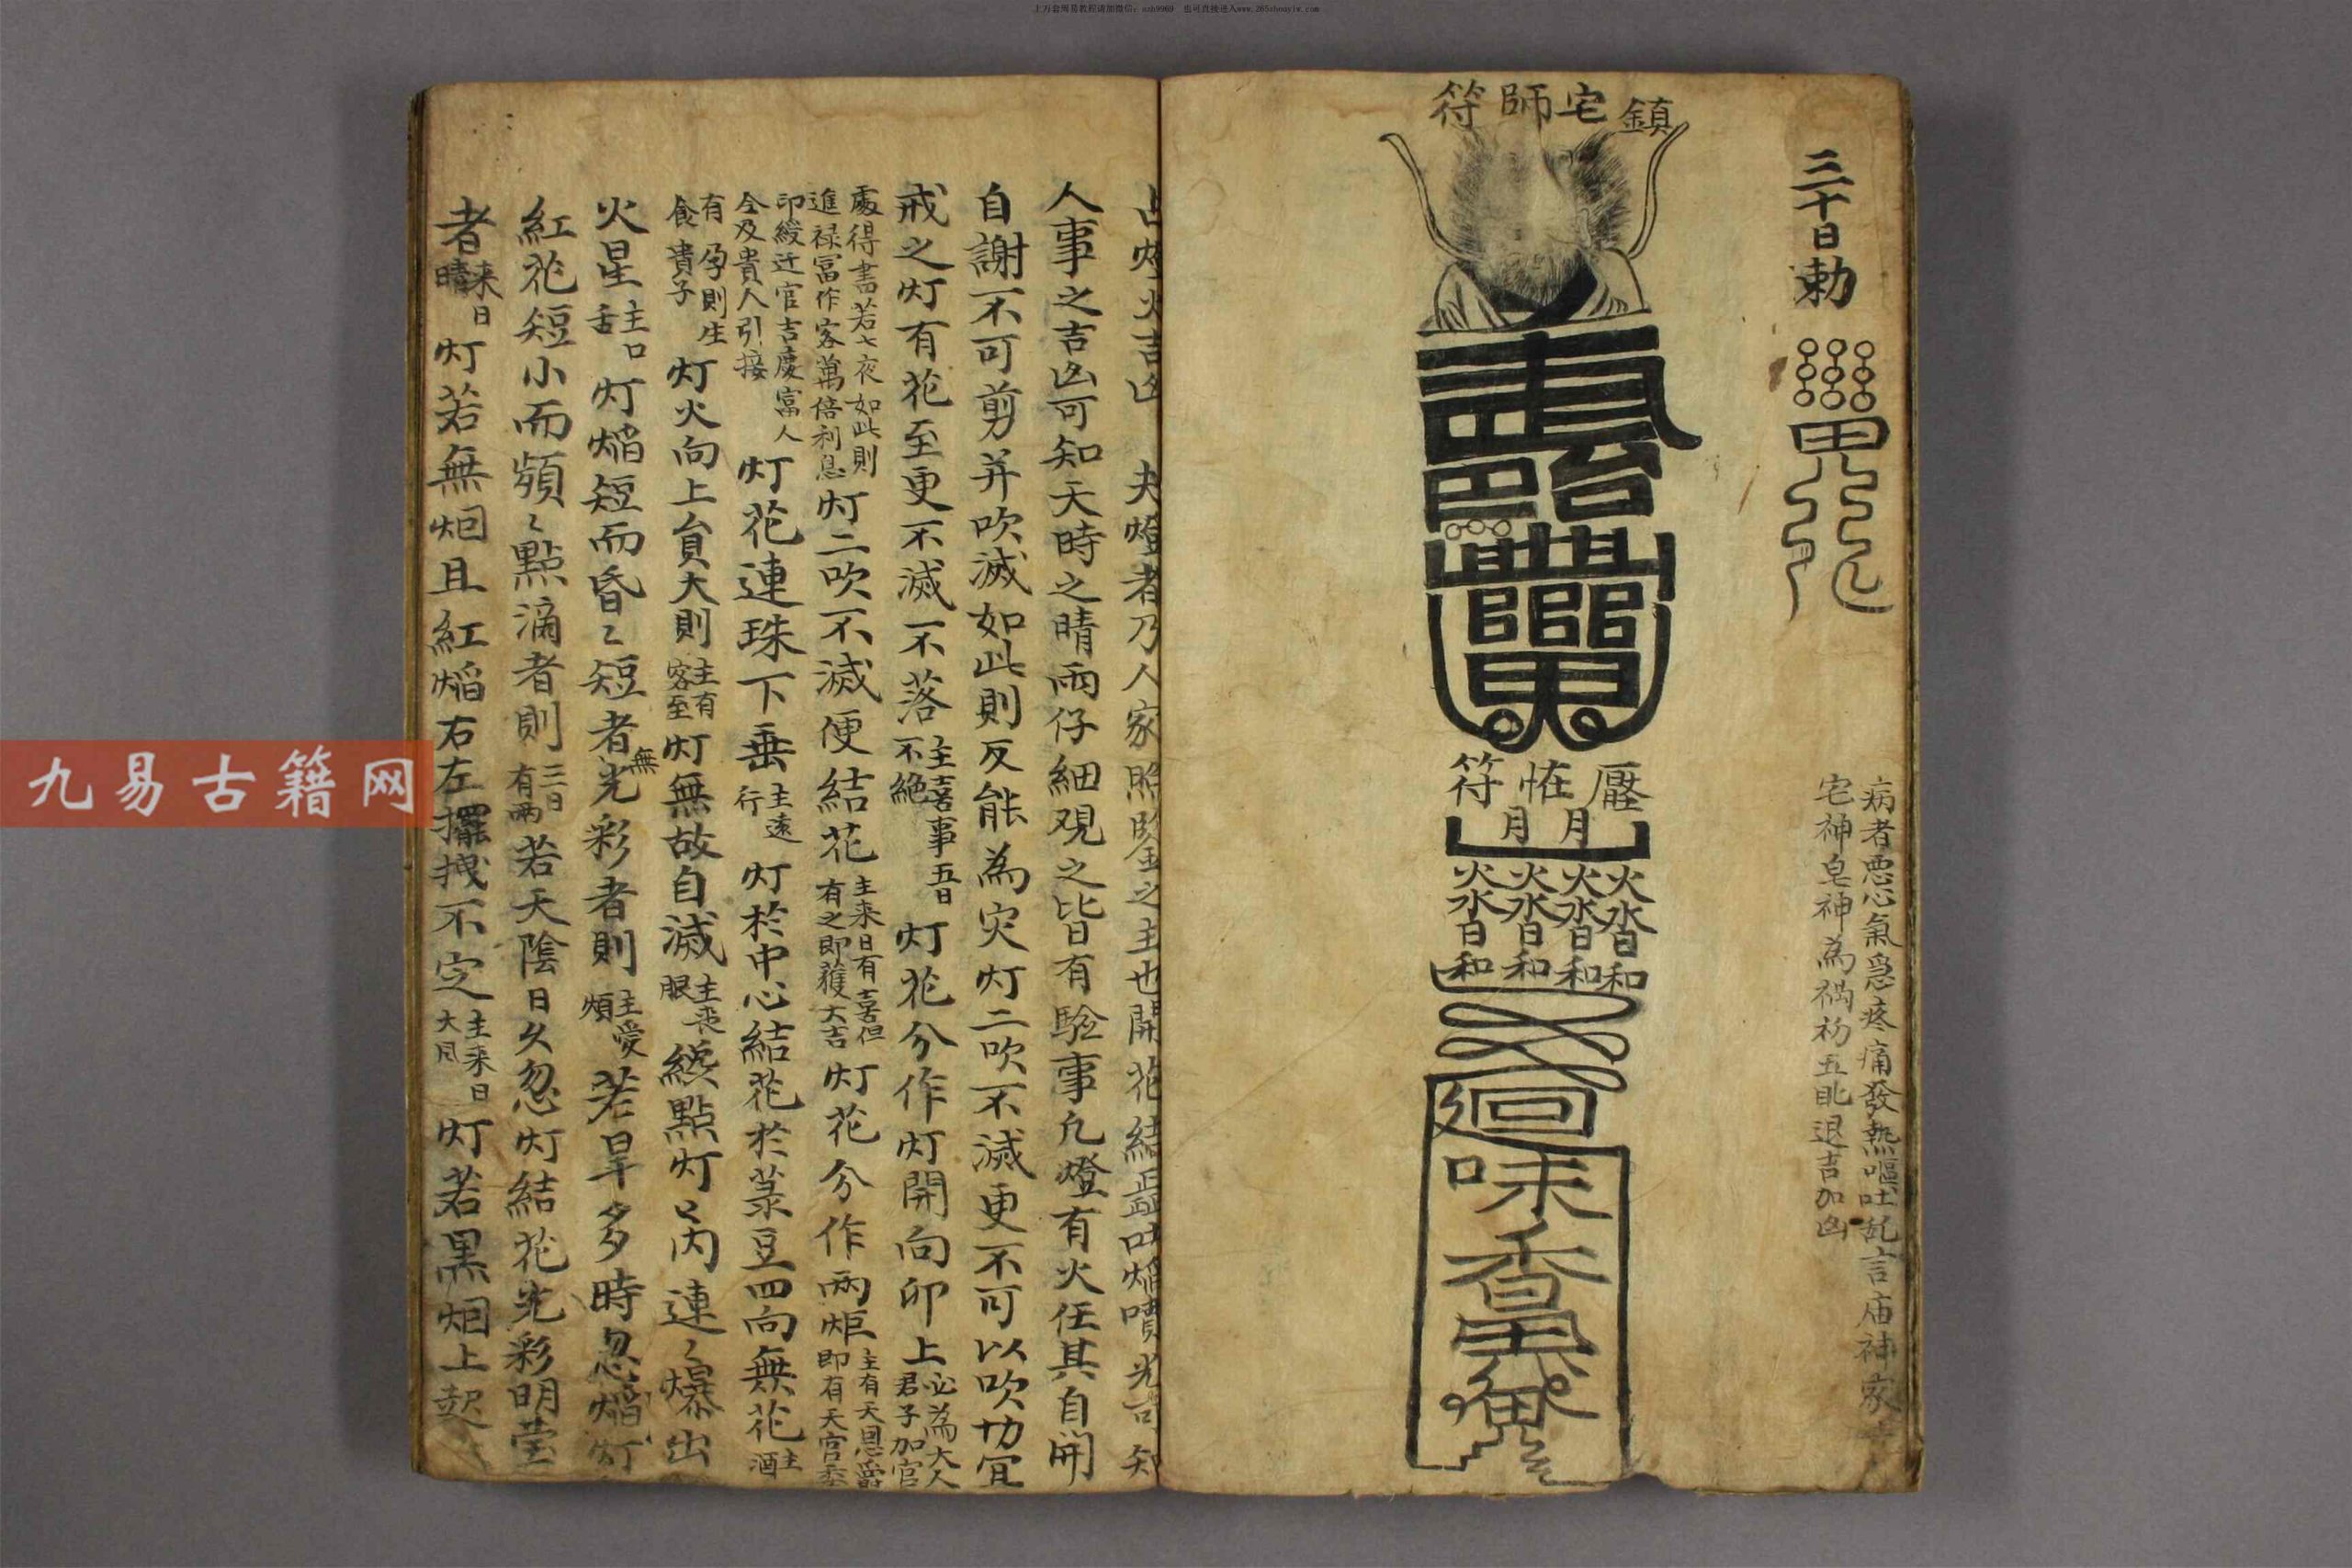 上万套周易教程请加微信：nxh9969　也可直接进入www.265zhouyiw.com
九易古籍网
三十日勅
病者惡心氣急疼痛發熱嘔吐乱言庙神家
宅神皂神為禍初五日退吉加凶
鎮宅師符
壓怪符
月月
火火火火
水水水水
日日日日
和和和和
迴
味
香
占灯火吉凶　夫燈者乃人家照鑒之主也開花結蕊吐焰噴光善知
人事之吉凶可知天時之晴雨仔細观之皆有驗事凢燈有火任其自開
自謝不可剪弃吹滅如此則反能為灾灯二吹不滅更不可以吹切宜
戒之灯有花至更不滅不落主喜事五日不絶灯花分作灯開向卯上必為大人君子加官
處得書若七夜如此則進禄冨作客萬倍利息灯二吹不滅便結花主来日有喜但有之即獲大吉灯花分作兩炬主有天恩爵即有天官委
印綬迁官吉慶富人全及貴人引接灯花連珠下垂主遠行灯於中心結花於菉豆四向無花主酒
有孕則生食貴子灯火向上貟大則主有客至灯無故自滅主丧服縂點灯芮連〻爆出
火星主口舌灯焰短而昏〻短者無光彩者則主憂煩若旱多時忽焰灯
紅花短小而頻〻點滴者則三日有雨若天陰日久忽灯結花光彩明莹
者来日晴灯若無烟且紅焰右左擺拽不定主来日大風灯若黒烟上起